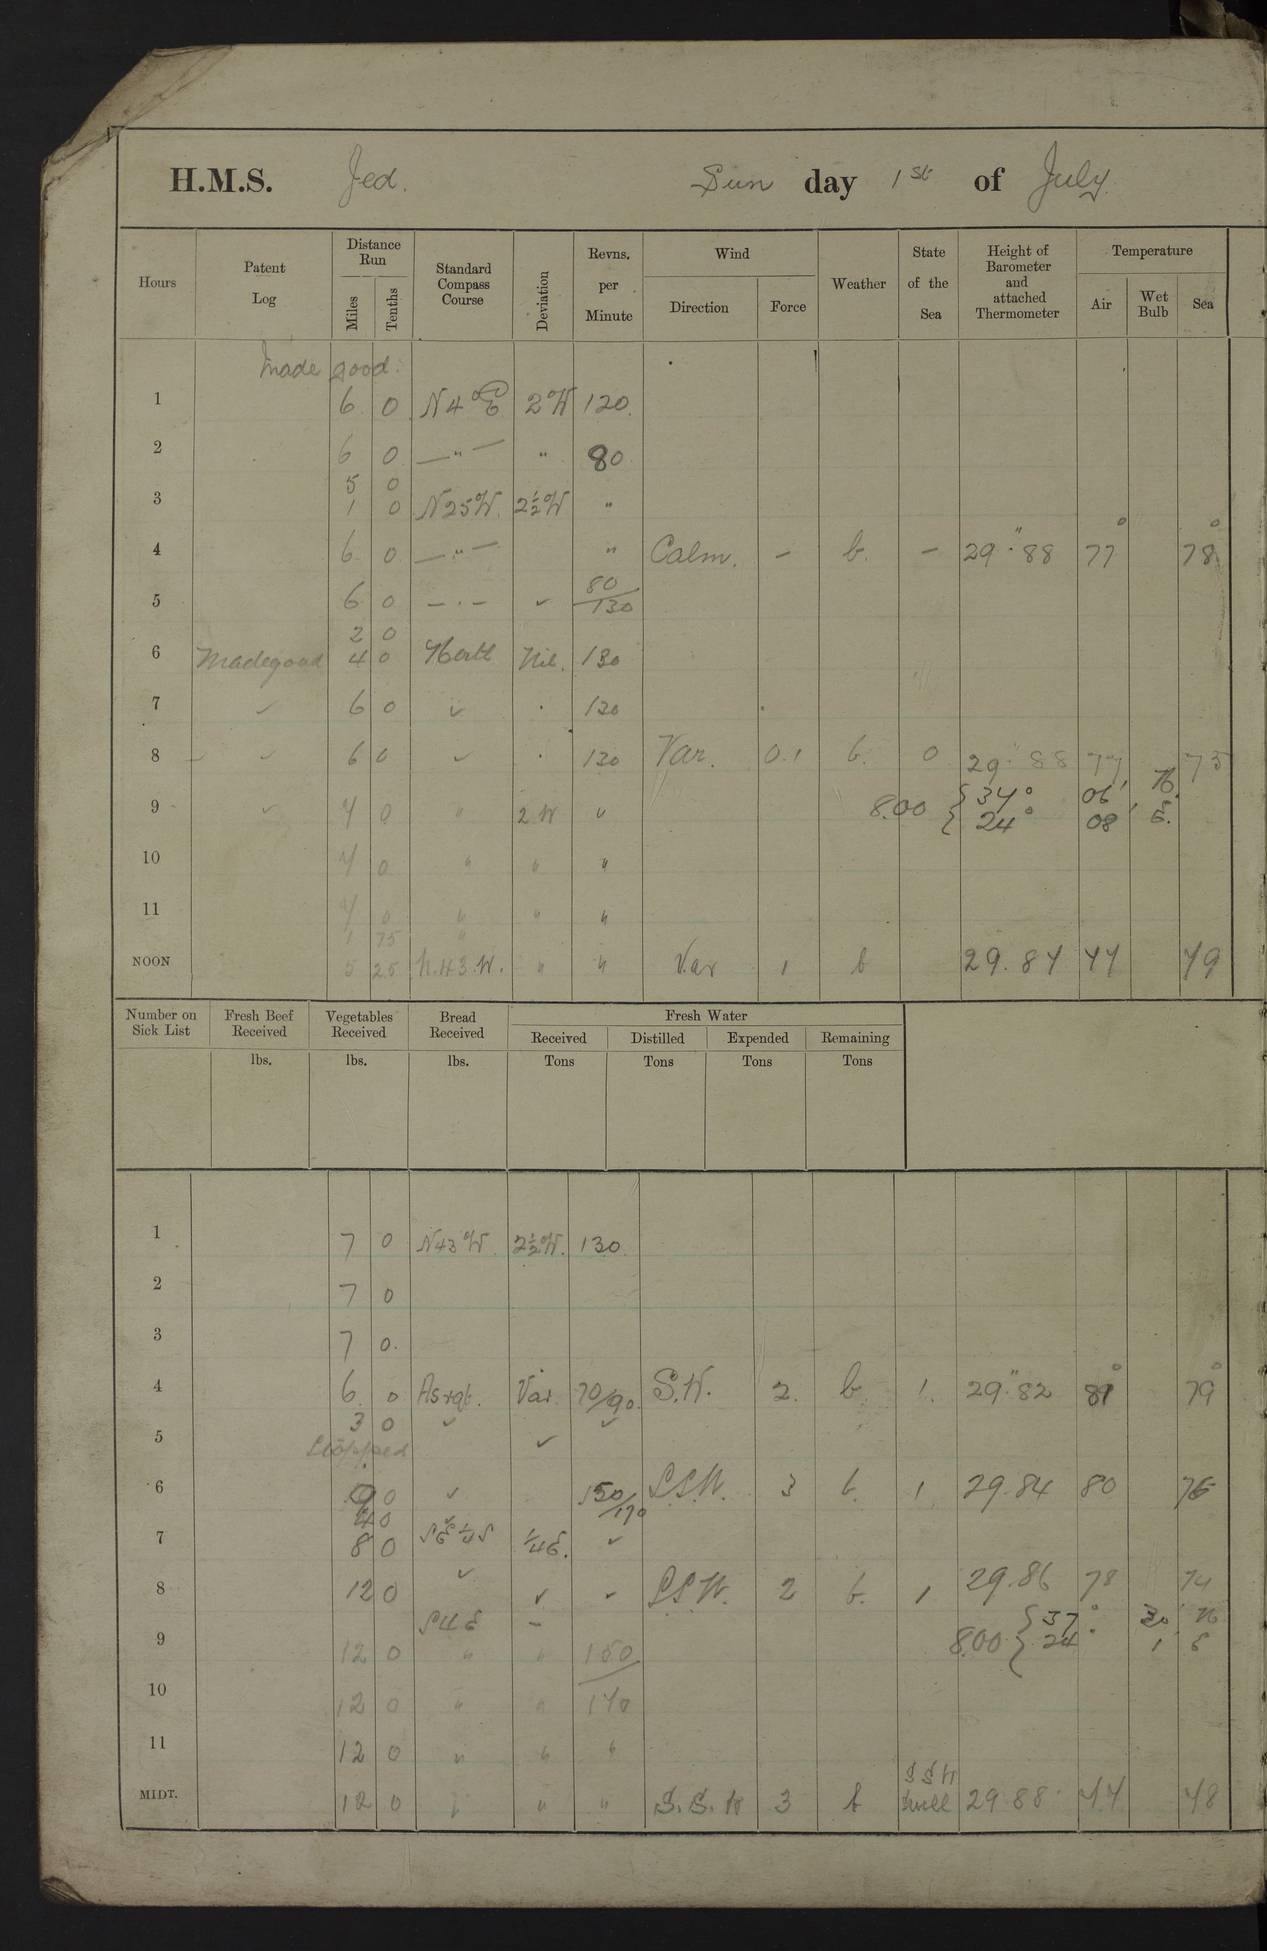 H.M.S. Jed. Sun day 1st of July
Hours Patent Log Distance Run Miles Tenths Standard Compass Course Deviation Revns. per Minute Wind Direction Force Weather State of the Sea Height of Barometer and attached Thermometer Temperature Air Wet Bulb Sea
Made good.
1 6 0 N4°E 2°W 120.
2 6 0 — " — " 80
5 0
3 1 0 N25°W. 2½°W "
4 6 0 — " — " Calm. - b. - 29".88 77° 78°
5 6 0 — " — ✓ 80/130
2 0
6 Madegood 4 0 North Nil. 130
7 ✓ 6 0 ✓ . 130
8 ✓ 6 0 ✓ . 130 Var. 0.1 b. 0 29".88 77 75
9 ✓ 7 0 " 2 W " 8.00 { 34° 06' N.
24° 08' E.
10 7 0 " " "
11 7 0 " " "
1 75 "
NOON 5 25 N.43.W. " " Var 1 b 29.87 77 79
Number on Sick List Fresh Beef Received Vegetables Received Bread Received Fresh Water
Received Distilled Expended Remaining
lbs. lbs. lbs. Tons Tons Tons Tons
1 7 0 N43°W. 2½°W. 130.
2 7 0
3 7 0.
4 6 0 As rqt. Var. 70/90. S.W. 2. b 1. 29".82 81° 79°
3 0 ✓ ✓
5 Stopped ✓
6 0 ✓ 150/170 S.S.W. 3 b. 1 29.84 80 76
4 0
7 8 0 SE¼S ¼E. ✓
8 12 0 ✓ ✓ ✓ S.S.W. 2 b. 1 29.86 78 74
S4E - 8.00 { 37° 30' N
9 12 0 " " 150 24° 1 E
10 12 0 " " 170
11 12 0 " " "
S S W
MIDT. 12 0 " " " S.S.W 3 b Swell 29.88 77 78